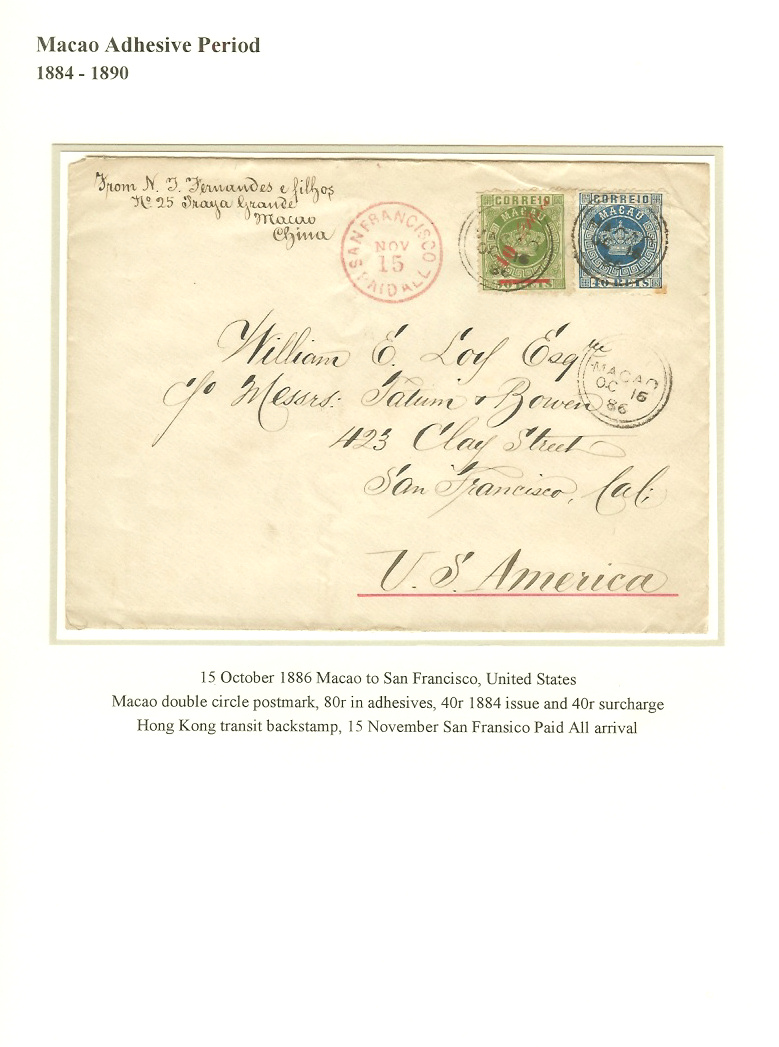 Macao Adhesive Period
1884 - 1890
From N. T. Fernandes e filhos
No. 25 Praya Grande
Macao
China
SAN FRANCISCO
NOV
15
PAID ALL
CORREIO
MACAU
CORREIO
MACAU
REIS
William E. Loy Esqre
c/o Messrs: Tatum & Bowen
423 Clay Street
San Francisco, Cal:
U.S. America
MACAO
OC 16
86
15 October 1886 Macao to San Francisco, United States
Macao double circle postmark, 80r in adhesives, 40r 1884 issue and 40r surcharge
Hong Kong transit backstamp, 15 November San Fransico Paid All arrival